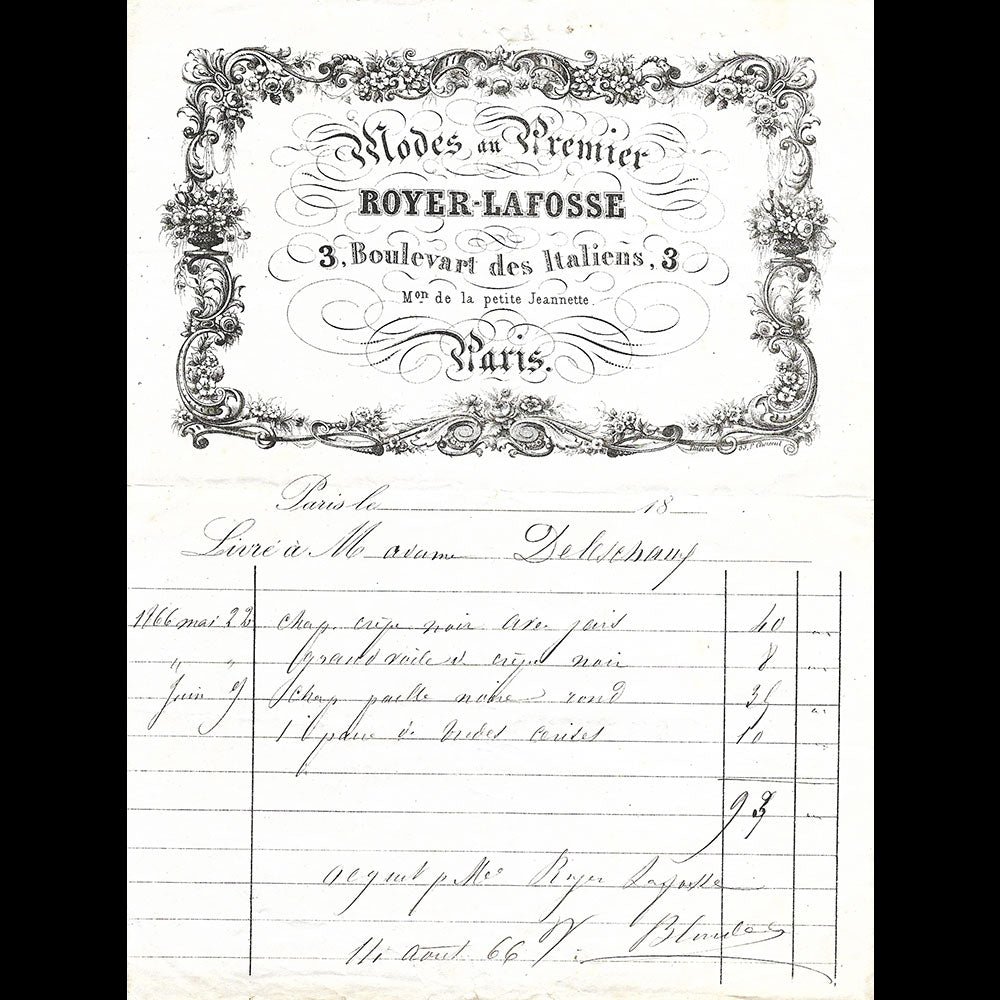 Modes au Premier
ROYER-LAFOSSE
3, Boulevart des Italiens, 3
Mon de la petite Jeannette
Paris.
Paris le 18
Livré à Madame
1866 mai 22 chap. crêpe noir avec jais 40 "
" " grand voile de crêpe noir 8 "
Juin 9 chap paille noire rond 35 "
10 "
93 "
acquit p Mme Royer Lafosse
août 66